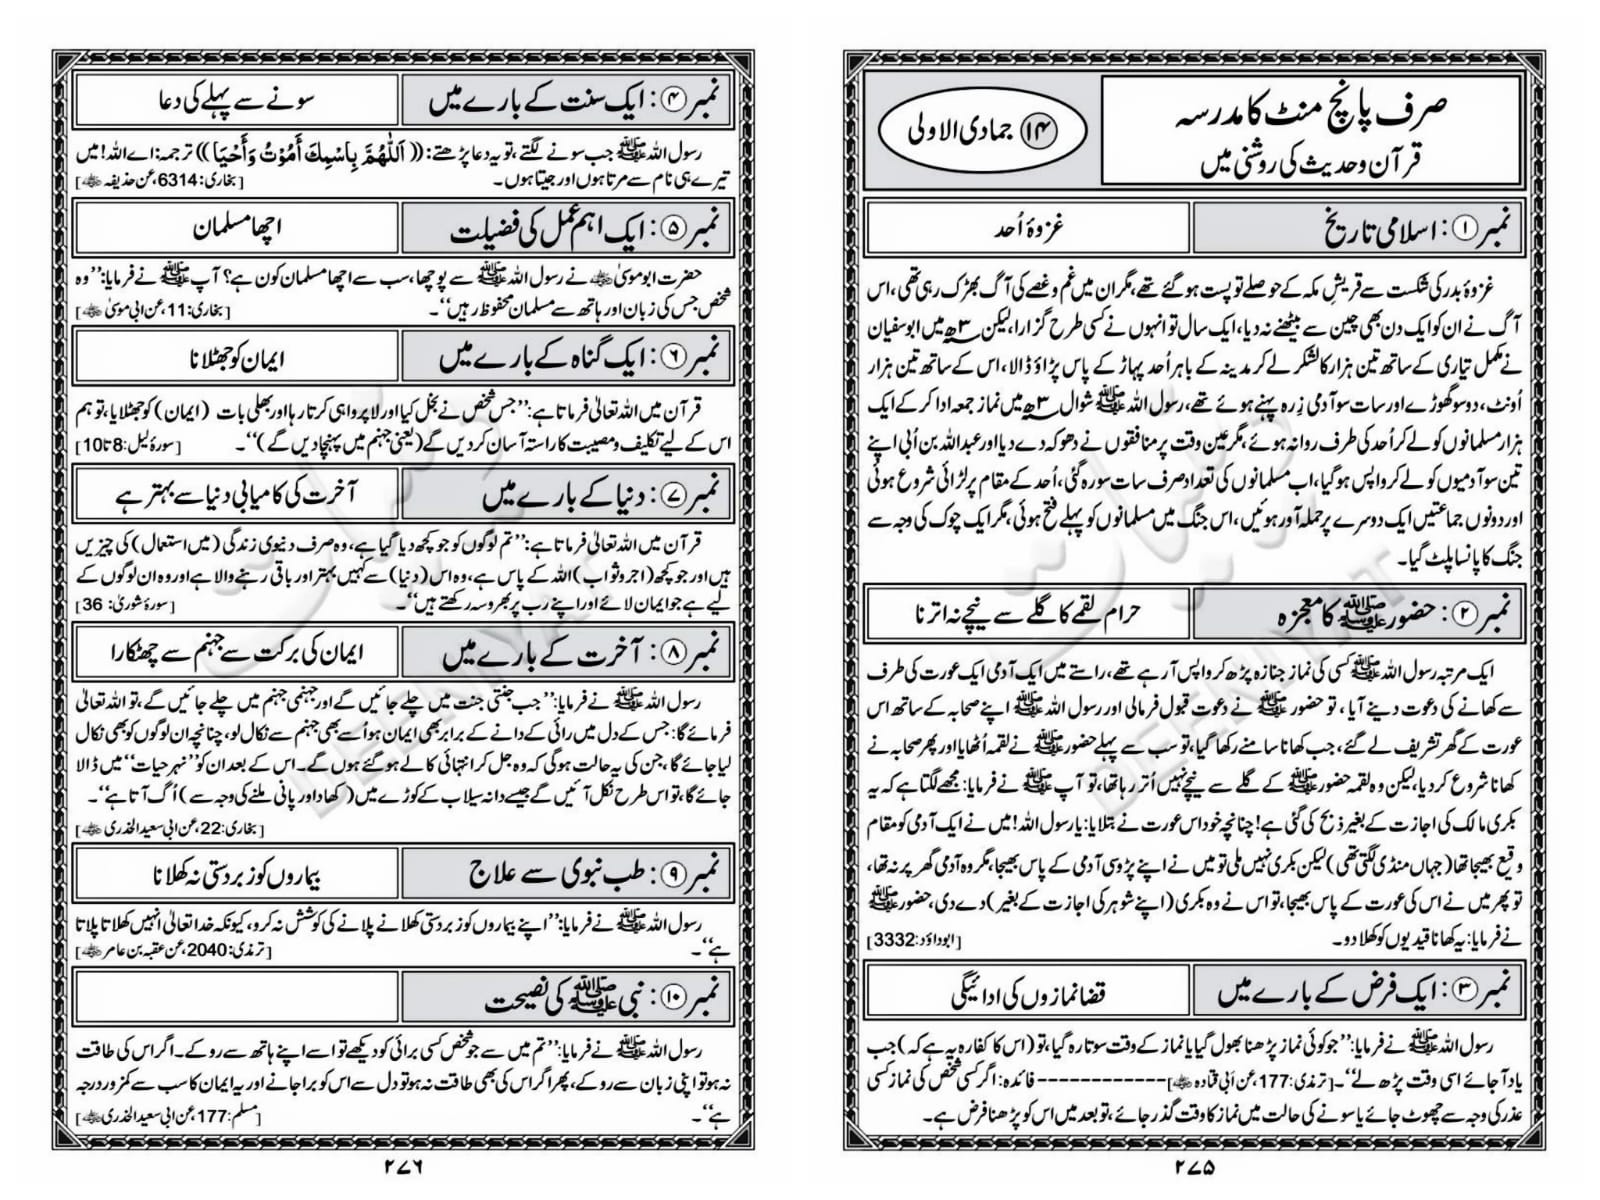 صرف پانچ منٹ کا مدرسہ
قرآن و حدیث کی روشنی میں
۱۴ جمادی الاولی
نمبر ۱: اسلامی تاریخ
غزوۂ اُحد
غزوۂ بدر کی شکست سے قریشِ مکہ کے حوصلے تو پست ہوگئے تھے، مگر ان میں غم و غصے کی آگ بھڑک رہی تھی، اس
آگ نے ان کو ایک دن بھی چین سے بیٹھنے نہ دیا، ایک سال تو انہوں نے کسی طرح گزارا، لیکن ۳ھ میں ابوسفیان
نے مکمل تیاری کے ساتھ تین ہزار کا لشکر لے کر مدینہ کے باہر اُحد پہاڑ کے پاس پڑاؤ ڈالا، اس کے ساتھ تین ہزار
اُونٹ، دو سو گھوڑے اور سات سو آدمی زِرہ پہنے ہوئے تھے، رسول اللہ ﷺ شوال ۳ھ میں نماز جمعہ ادا کر کے ایک
ہزار مسلمانوں کو لے کر اُحد کی طرف روانہ ہوئے، مگر عین وقت پر منافقوں نے دھوکہ دے دیا اور عبداللہ بن اُبی اپنے
تین سو آدمیوں کو لے کر واپس ہوگیا، اب مسلمانوں کی تعداد صرف سات سو رہ گئی، اُحد کے مقام پر لڑائی شروع ہوئی
اور دونوں جماعتیں ایک دوسرے پر حملہ آور ہوئیں، اس جنگ میں مسلمانوں کو پہلے فتح ہوئی، مگر ایک چوک کی وجہ سے
جنگ کا پانسا پلٹ گیا۔
نمبر ۲: حضور ﷺ کا معجزہ
حرام لقمے کا گلے سے نیچے نہ اترنا
ایک مرتبہ رسول اللہ ﷺ کسی کی نماز جنازہ پڑھ کر واپس آرہے تھے، راستے میں ایک آدمی ایک عورت کی طرف
سے کھانے کی دعوت دینے آیا، تو حضور ﷺ نے دعوت قبول فرمالی اور رسول اللہ ﷺ اپنے صحابہ کے ساتھ اس
عورت کے گھر تشریف لے گئے، جب کھانا سامنے رکھا گیا، تو سب سے پہلے حضور ﷺ نے لقمہ اُٹھایا اور پھر صحابہ نے
کھانا شروع کردیا، لیکن وہ لقمہ حضور ﷺ کے گلے سے نیچے نہیں اُتر رہا تھا، تو آپ ﷺ نے فرمایا: مجھے لگتا ہے کہ یہ
بکری مالک کی اجازت کے بغیر ذبح کی گئی ہے! چنانچہ خود اس عورت نے بتلایا: یا رسول اللہ! میں نے ایک آدمی کو مقام
وقیع بھیجا تھا (جہاں منڈی لگتی تھی) لیکن بکری نہیں ملی تو میں نے اپنے پڑوسی آدمی کے پاس بھیجا، مگر وہ آدمی گھر پر نہ تھا،
تو پھر میں نے اس کی عورت کے پاس بھیجا، تو اس نے وہ بکری (اپنے شوہر کی اجازت کے بغیر) دے دی، حضور ﷺ
نے فرمایا: یہ کھانا قیدیوں کو کھلا دو۔ [ابوداؤد: 3332]
نمبر ۳: ایک فرض کے بارے میں
قضا نمازوں کی ادائیگی
رسول اللہ ﷺ نے فرمایا: ’’جو کوئی نماز پڑھنا بھول گیا یا نماز کے وقت سوتا رہ گیا، تو (اس کا کفارہ یہ ہے کہ) جب
یاد آجائے اسی وقت پڑھ لے‘‘۔ [ترمذی: 177، عن ابی قتادہ ؓ] ------------ فائدہ: اگر کسی شخص کی نماز کسی
عذر کی وجہ سے چھوٹ جائے یا سونے کی حالت میں نماز کا وقت گذر جائے، تو بعد میں اس کو پڑھنا فرض ہے۔
۲۷۵
نمبر ۴: ایک سنت کے بارے میں
سونے سے پہلے کی دعا
رسول اللہ ﷺ جب سونے لگتے، تو یہ دعا پڑھتے: ((اَللّٰهُمَّ بِاسْمِكَ أَمُوْتُ وَأَحْيَا)) ترجمہ: اے اللہ! میں
تیرے ہی نام سے مرتا ہوں اور جیتا ہوں۔ [بخاری: 6314، عن حذیفہ ؓ]
نمبر ۵: ایک اہم عمل کی فضیلت
اچھا مسلمان
حضرت ابوموسیٰ ؓ نے رسول اللہ ﷺ سے پوچھا، سب سے اچھا مسلمان کون ہے؟ آپ ﷺ نے فرمایا: ’’وہ
شخص جس کی زبان اور ہاتھ سے مسلمان محفوظ رہیں‘‘۔ [بخاری: 11، عن ابی موسیٰ ؓ]
نمبر ۶: ایک گناہ کے بارے میں
ایمان کو جھٹلانا
قرآن میں اللہ تعالیٰ فرماتا ہے: ’’جس شخص نے بخل کیا اور لاپرواہی کرتا رہا اور بھلی بات (ایمان) کو جھٹلایا، تو ہم
اس کے لیے تکلیف و مصیبت کا راستہ آسان کردیں گے (یعنی جہنم میں پہنچا دیں گے)‘‘۔ [سورۂ لیل: 8 تا 10]
نمبر ۷: دنیا کے بارے میں
آخرت کی کامیابی دنیا سے بہتر ہے
قرآن میں اللہ تعالیٰ فرماتا ہے: ’’تم لوگوں کو جو کچھ دیا گیا ہے، وہ صرف دنیوی زندگی (میں استعمال) کی چیزیں
ہیں اور جو کچھ (اجر و ثواب) اللہ کے پاس ہے، وہ اس (دنیا) سے کہیں بہتر اور باقی رہنے والا ہے اور وہ ان لوگوں کے
لیے ہے جو ایمان لائے اور اپنے رب پر بھروسہ رکھتے ہیں‘‘۔ [سورۂ شوریٰ: 36]
نمبر ۸: آخرت کے بارے میں
ایمان کی برکت سے جہنم سے چھٹکارا
رسول اللہ ﷺ نے فرمایا: ’’جب جنتی جنت میں چلے جائیں گے اور جہنمی جہنم میں چلے جائیں گے، تو اللہ تعالیٰ
فرمائے گا: جس کے دل میں رائی کے دانے کے برابر بھی ایمان ہو اُسے بھی جہنم سے نکال لو، چنانچہ ان لوگوں کو بھی نکال
لیا جائے گا، جن کی یہ حالت ہوگی کہ وہ جل کر انتہائی کالے ہوگئے ہوں گے۔ اس کے بعد ان کو ’’نہر حیات‘‘ میں ڈالا
جائے گا، تو اس طرح نکل آئیں گے جیسے دانہ سیلاب کے کوڑے میں (کھاد اور پانی ملنے کی وجہ سے) اُگ آتا ہے‘‘۔
[بخاری: 22، عن ابی سعید الخدری ؓ]
نمبر ۹: طب نبوی سے علاج
بیماروں کو زبردستی نہ کھلانا
رسول اللہ ﷺ نے فرمایا: ’’اپنے بیماروں کو زبردستی کھلانے پلانے کی کوشش نہ کرو، کیونکہ خدا تعالیٰ انہیں کھلاتا پلاتا
ہے‘‘۔ [ترمذی: 2040، عن عقبہ بن عامر ؓ]
نمبر ۱۰: نبی ﷺ کی نصیحت
رسول اللہ ﷺ نے فرمایا: ’’تم میں سے جو شخص کسی برائی کو دیکھے تو اسے اپنے ہاتھ سے روکے۔ اگر اس کی طاقت
نہ ہو تو اپنی زبان سے روکے، پھر اگر اس کی بھی طاقت نہ ہو تو دل سے اس کو برا جانے اور یہ ایمان کا سب سے کمزور درجہ
ہے‘‘۔ [مسلم: 177، عن ابی سعید الخدری ؓ]
۲۷۶
دینیات
DEENIYAT
دینیات
DEENIYAT